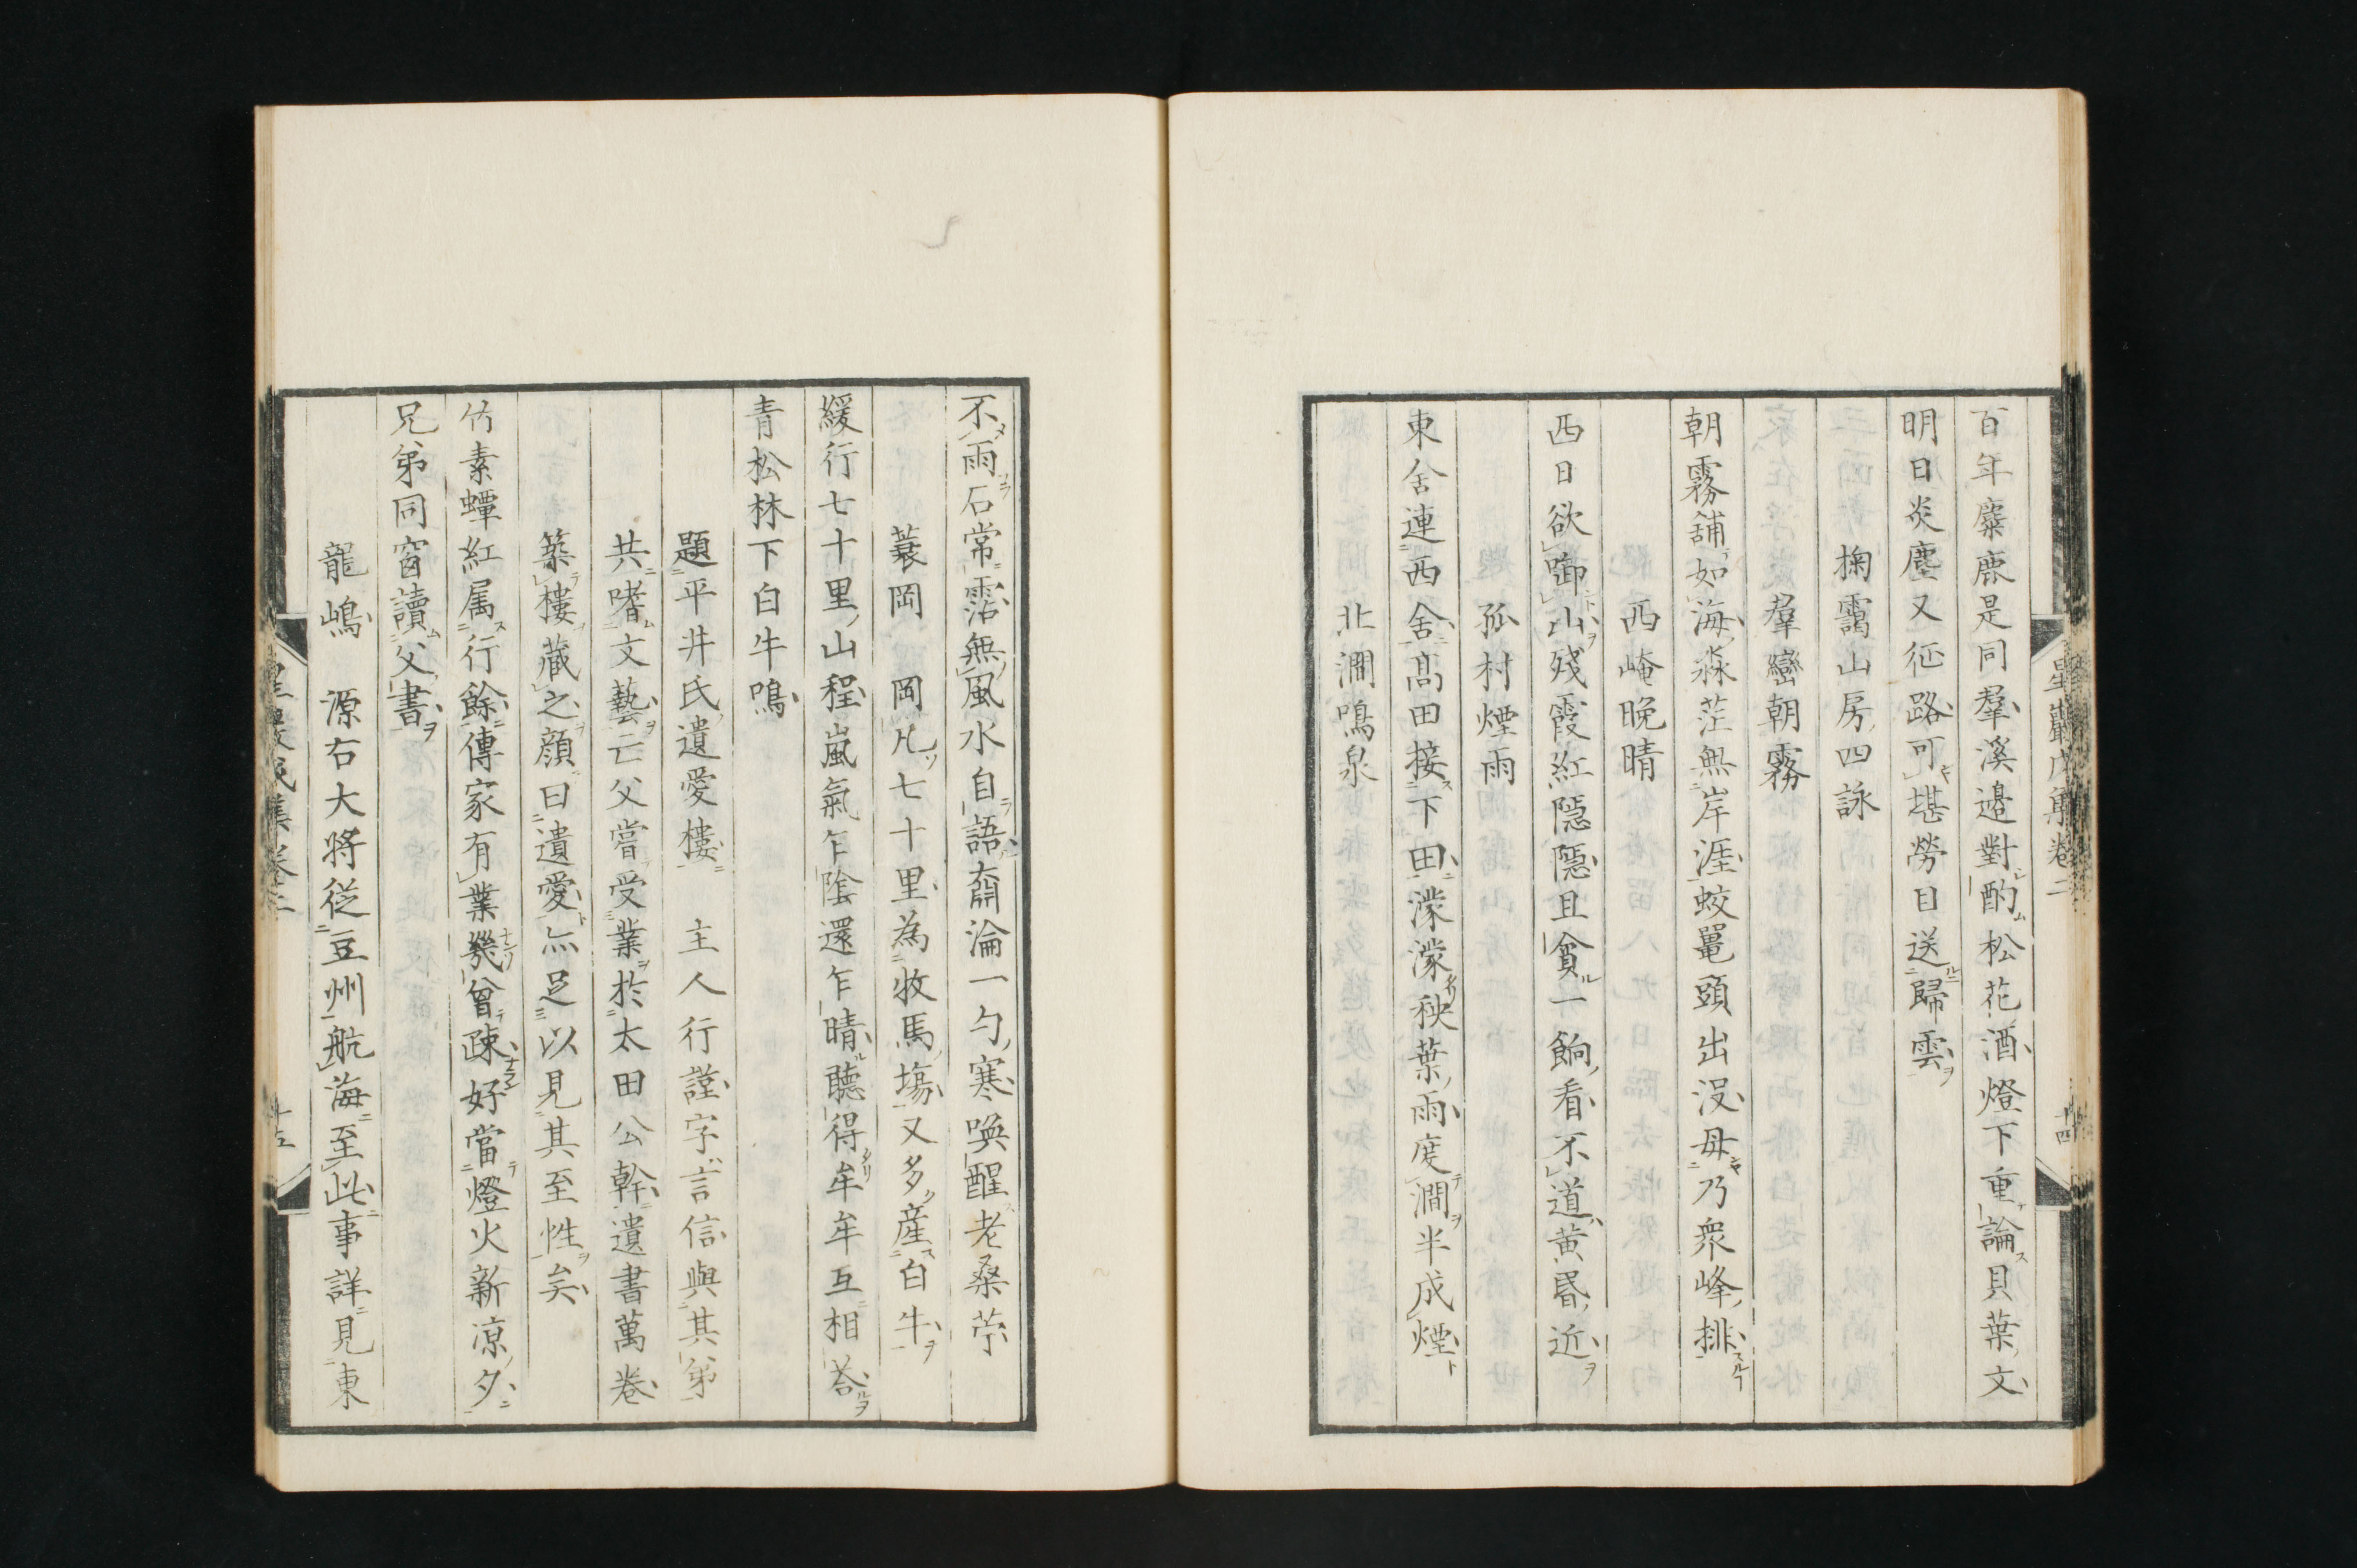 百年麋鹿是同羣溪邉對酌松花酒燈下重論貝葉文
明日炎塵又征路可堪勞日送歸雲
掬靄山房四詠
羣巒朝霧
朝霧舖如海淼茫無岸涯蛟鼉頭出没毋乃衆峰排
西崦晚晴
西日欲啣山殘霞紅隱隱且貪一餉看不道黄昏近
孤村煙雨
東舍連西舍髙田接下田濛濛秧葉雨度澗半成煙
北澗鳴泉
不雨石常霑無風水自語奫淪一勺寒喚醒老桑苧
蓑岡　岡凡七十里為牧馬塲又多産白牛
緩行七十里山程嵐氣乍陰還乍晴聽得牟牟互相荅
青松林下白牛鳴
題平井氏遺愛樓　主人行謹字言信與其弟
共嗜文藝亡父嘗受業於太田公幹遺書萬卷
築樓藏之顔曰遺愛亦足以見其至性矣
竹素蟫紅属行餘傳家有業幾曾疎好當燈火新凉夕
兄弟同窗讀父書
龍嶋　源右大將從豆州航海至此事詳見東